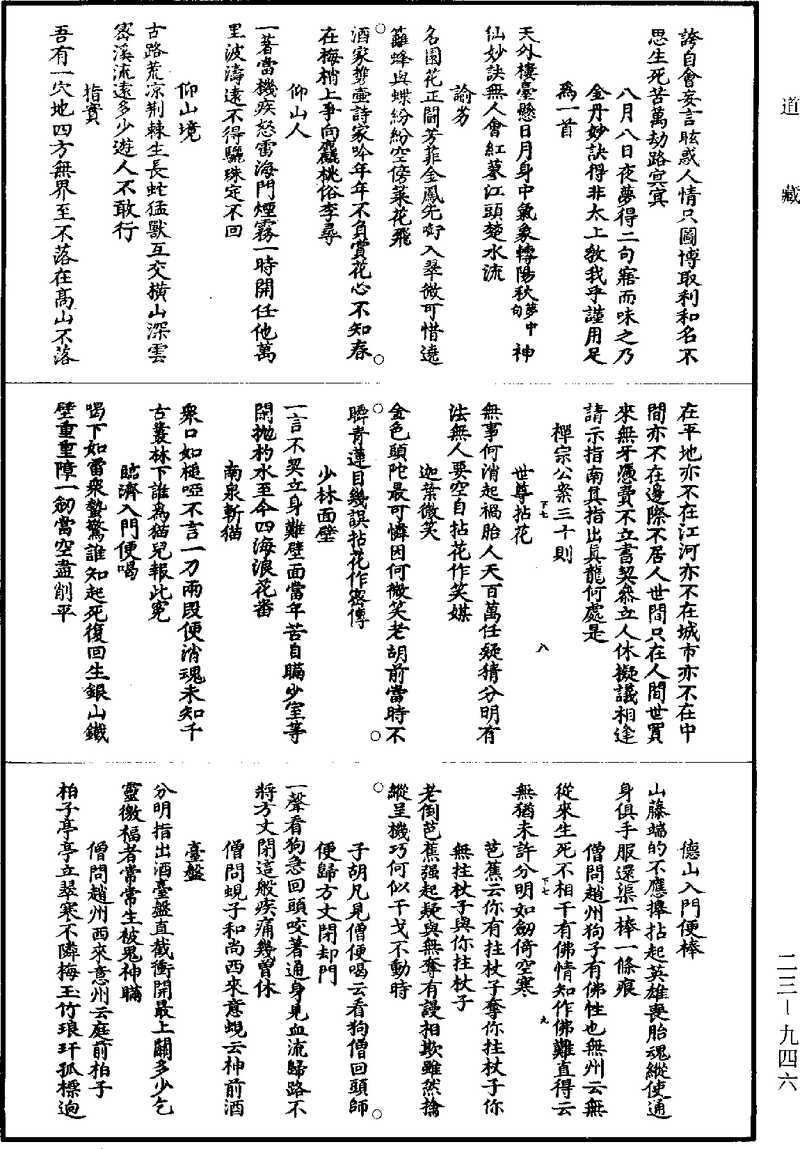 道藏
誇自會妄言眩惑人情只圖博取利和名不
思生死苦萬劫路㝠㝠
八月八日夜夢得二句寤而味之乃
金丹妙訣得非太上教我乎謹用足
爲一首
天外樓臺懸日月身中氣象轉陽秋夢中句神
仙妙訣無人會紅蓼江頭楚水流
諭劣
名園花正鬪芳菲金鳳先啣入翠微可惜遶
籬蜂與蝶紛紛空傍菜花飛
酒家㔍壷詩家吟年年不負賞花心不知春
在梅梢上爭向麤桃俗李尋
仰山人
一著當機疾怒雷海門煙霧一時開任他萬
里波濤遠不得驪珠定不回
仰山境
古路荒凉荆棘生長虵猛獸互交橫山深雲
宻溪流遠多少遊人不敢行
指實
吾有一穴地四方無界至不落在髙山不落
在平地亦不在江河亦不在城市亦不在中
間亦不在邊際不居人世間只在人間世買
來無牙憑賣不立書契叅立人休擬議相逢
請示指南真指出真龍何處是
禪宗公案三十則
世尊拈花
下七
八
無事何消起禍胎人天百萬任疑猜分明有
法無人要空自拈花作笑媒
迦葉微笑
金色頭陀最可憐因何微笑老胡前當時不
瞬青蓮目幾誤拈花作宻傳
少林面壁
一言不契立身難壁面當年苦自瞞少室等
閑抛杓水至今四海浪花番
南泉斬猫
衆口如槌啞不言一刀兩段便消魂未知千
古叢林下誰爲猫兒報此寃
臨濟入門便喝
喝下如雷衆蟄驚誰知起死復回生銀山鐵
壁重重障一劒當空盡削平
德山入門便棒
山藤端的不應擧拈起英雄喪胆魂縱使通
身俱手服還渠一棒一條痕
僧問趙州狗子有佛性也無州云無
從來生死不相干有佛情知作佛難直得云
無猶未許分明如劒倚空寒
下七
九
芭蕉云你有拄杖子奪你拄杖子你
無拄杖子與你拄杖子
老倒芭蕉强起疑與無奪有謾相欺雖然擒
縱呈機巧何似干戈不動時
子胡凡見僧便喝云看狗僧回頭師
便歸方丈閉却門
一聲看狗急回頭咬著通身見血流歸路不
將方丈閉這般疾痛幾曽休
僧問蜆子和尚西來意蜆云神前酒
臺盤
分明指出酒臺盤直截衝開最上關多少乞
靈徼福者常常生被鬼神瞞
僧問趙州西來意州云庭前柏子
柏子亭亭立翠寒不隣梅玉竹琅玕孤標逈
二三—九四六